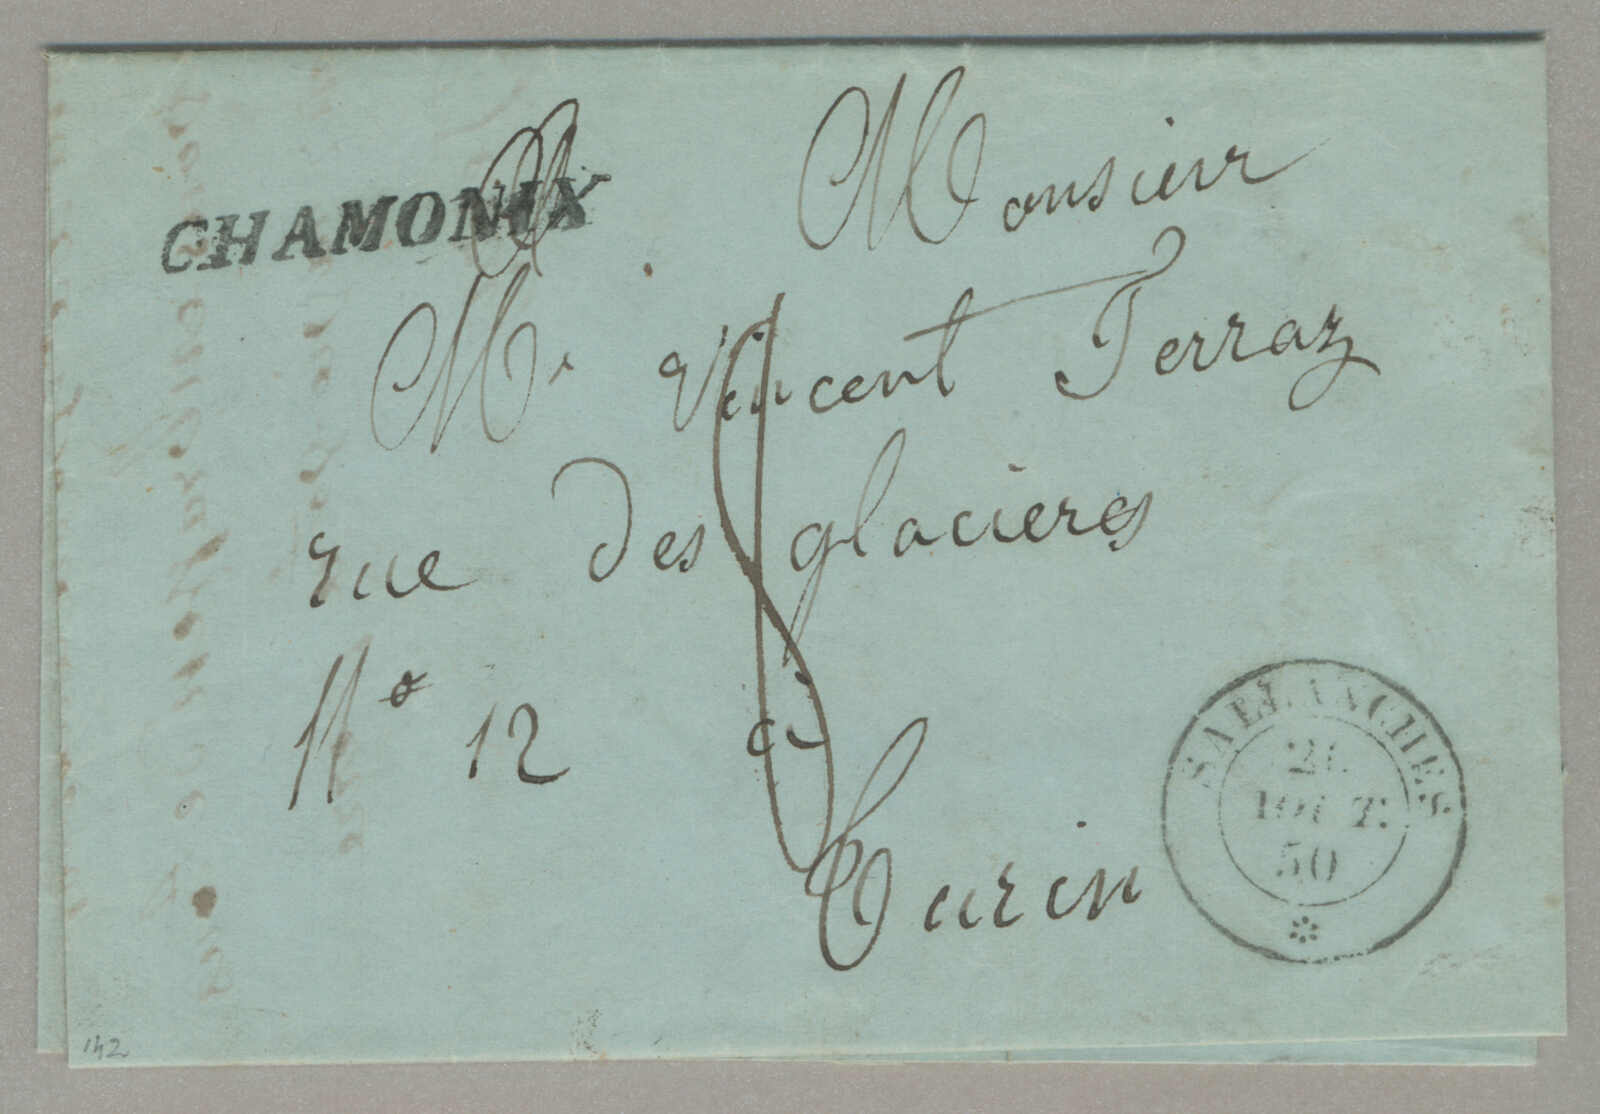 CHAMONIX
A Monsieur
Mr Vincent Terraz
rue des glacieres
No 12 à
Turin
8
SALLANCHES
21
AOUT
50
142